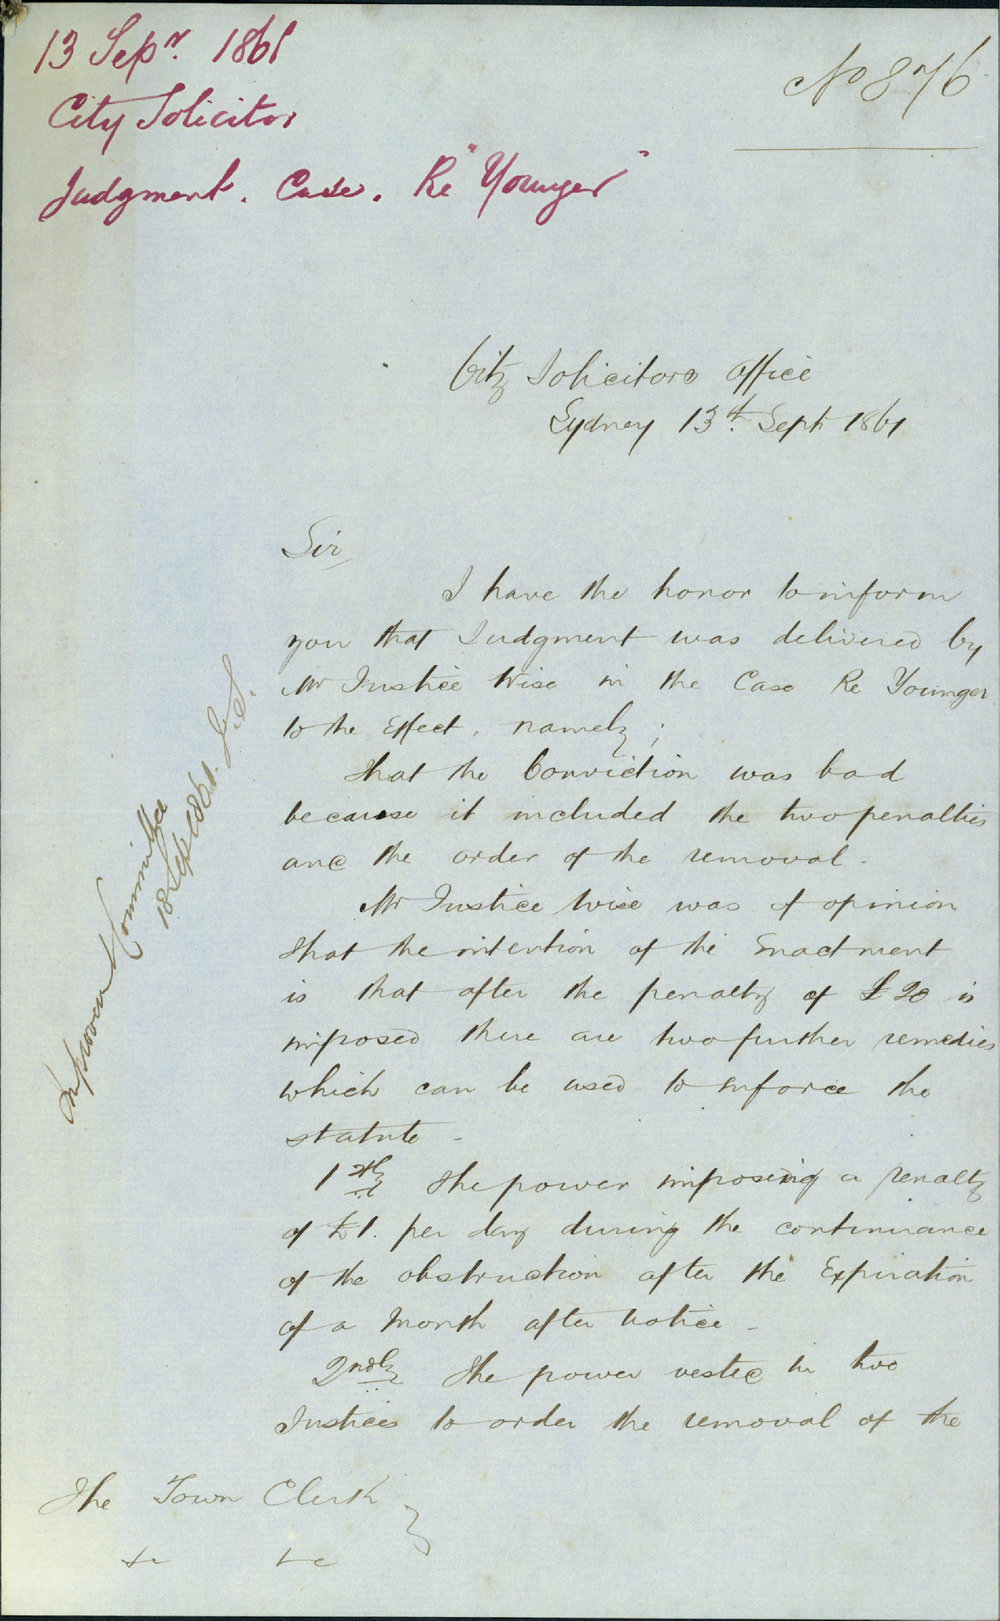 13 Sepr. 1861
City Solicitor
Judgment. Case. Re "Younger"
No 876
City Solicitors Office
Sydney 13th. Sept 1861
Sir,
I have the honor to inform
you that Judgment was delivered by
Mr Justice Wise in the Case Re Younger
to the Effect, namely;
that the Conviction was bad
because it included the two penalties
and the order of the removal.
Mr Justice Wise was of opinion
that the intention of the Enactment
is that after the penalty of £20 is
imposed there are two further remedies
which can be used to enforce the
statute -
1stly The power imposing a penalty
of £1. per day during the continuance
of the obstruction after the Expiration
of a Month after notice -
2ndly The power vested in two
Justices to order the removal of the
The Town Clerk
&c &c
Improvem Committee
18 Sep 1861. J.S.